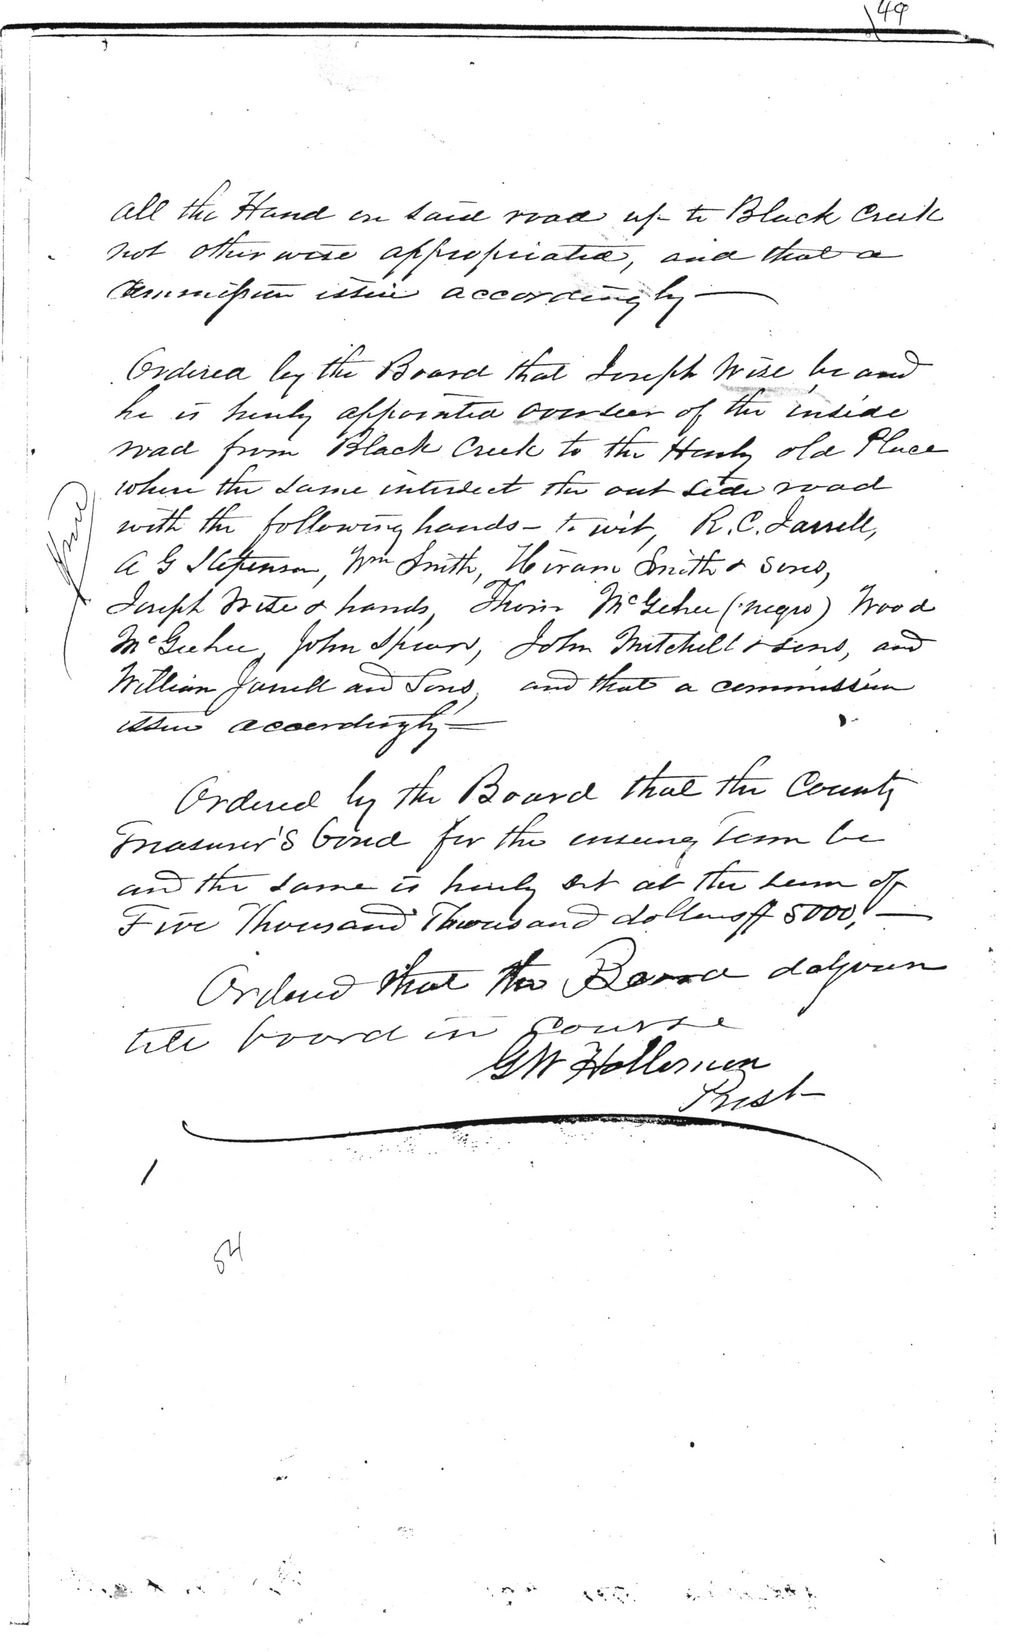 49
all the Hand on said road up to Black Creek
not otherwise appropriated, and that a
Commission issue accordingly —
Ordered by the Board that Joseph Wise be and
he is hereby appointed overseer of the inside
road from Black Creek to the Henly old Place
where the same intersect the out side road
with the following hands - to wit, R. C. Jarrell,
A G Stepenson, Wm Smith, Hiram Smith & sons,
Joseph Wise & hands, Thos McGehee (negro) Wood
McGehee, John Spears, John Mitchell & sons, and
William Jarrell and Sons, and that a commission
issue accordingly —
Ordered by the Board that the County
Treasurer's bond for the ensuing Term be
and the same is hereby set at the sum of
Five Thousand Thousand dollars $ 5000, —
Ordered that the Board adjourn
till board in Course
G W Holloman
Prest
54